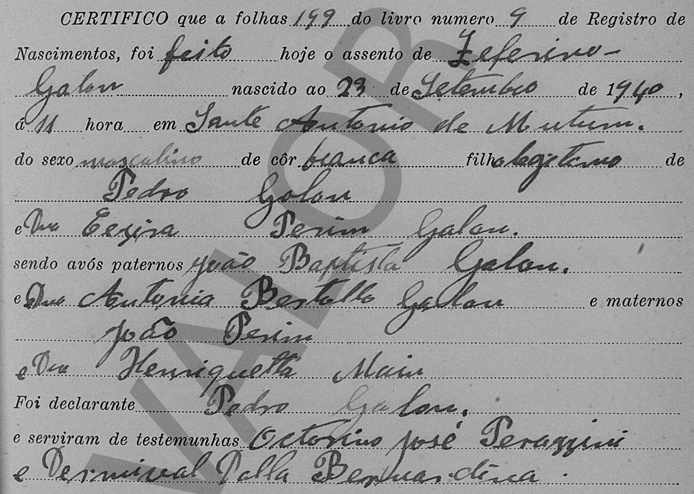 CERTIFICO que a folhas 199 do livro numero 9 de Registro de
Nascimentos, foi feito hoje o assento de Zeferino
Galon nascido ao 23 de Setembro de 1940,
á 11 hora em Santo Antonio de Mutum.
do sexo masculino de côr branca filho legitimo de
Pedro Galon
e Dna Perim Galon.
sendo avós paternos João Baptista Galon.
e Dna Antonia Bertollo Galon e maternos
João Perim
e Dna Henriquetta Main
Foi declarante Pedro Galon.
e serviram de testemunhas Octorino José Perazzini
e Dermival Dalla Bernardina.
VALOR